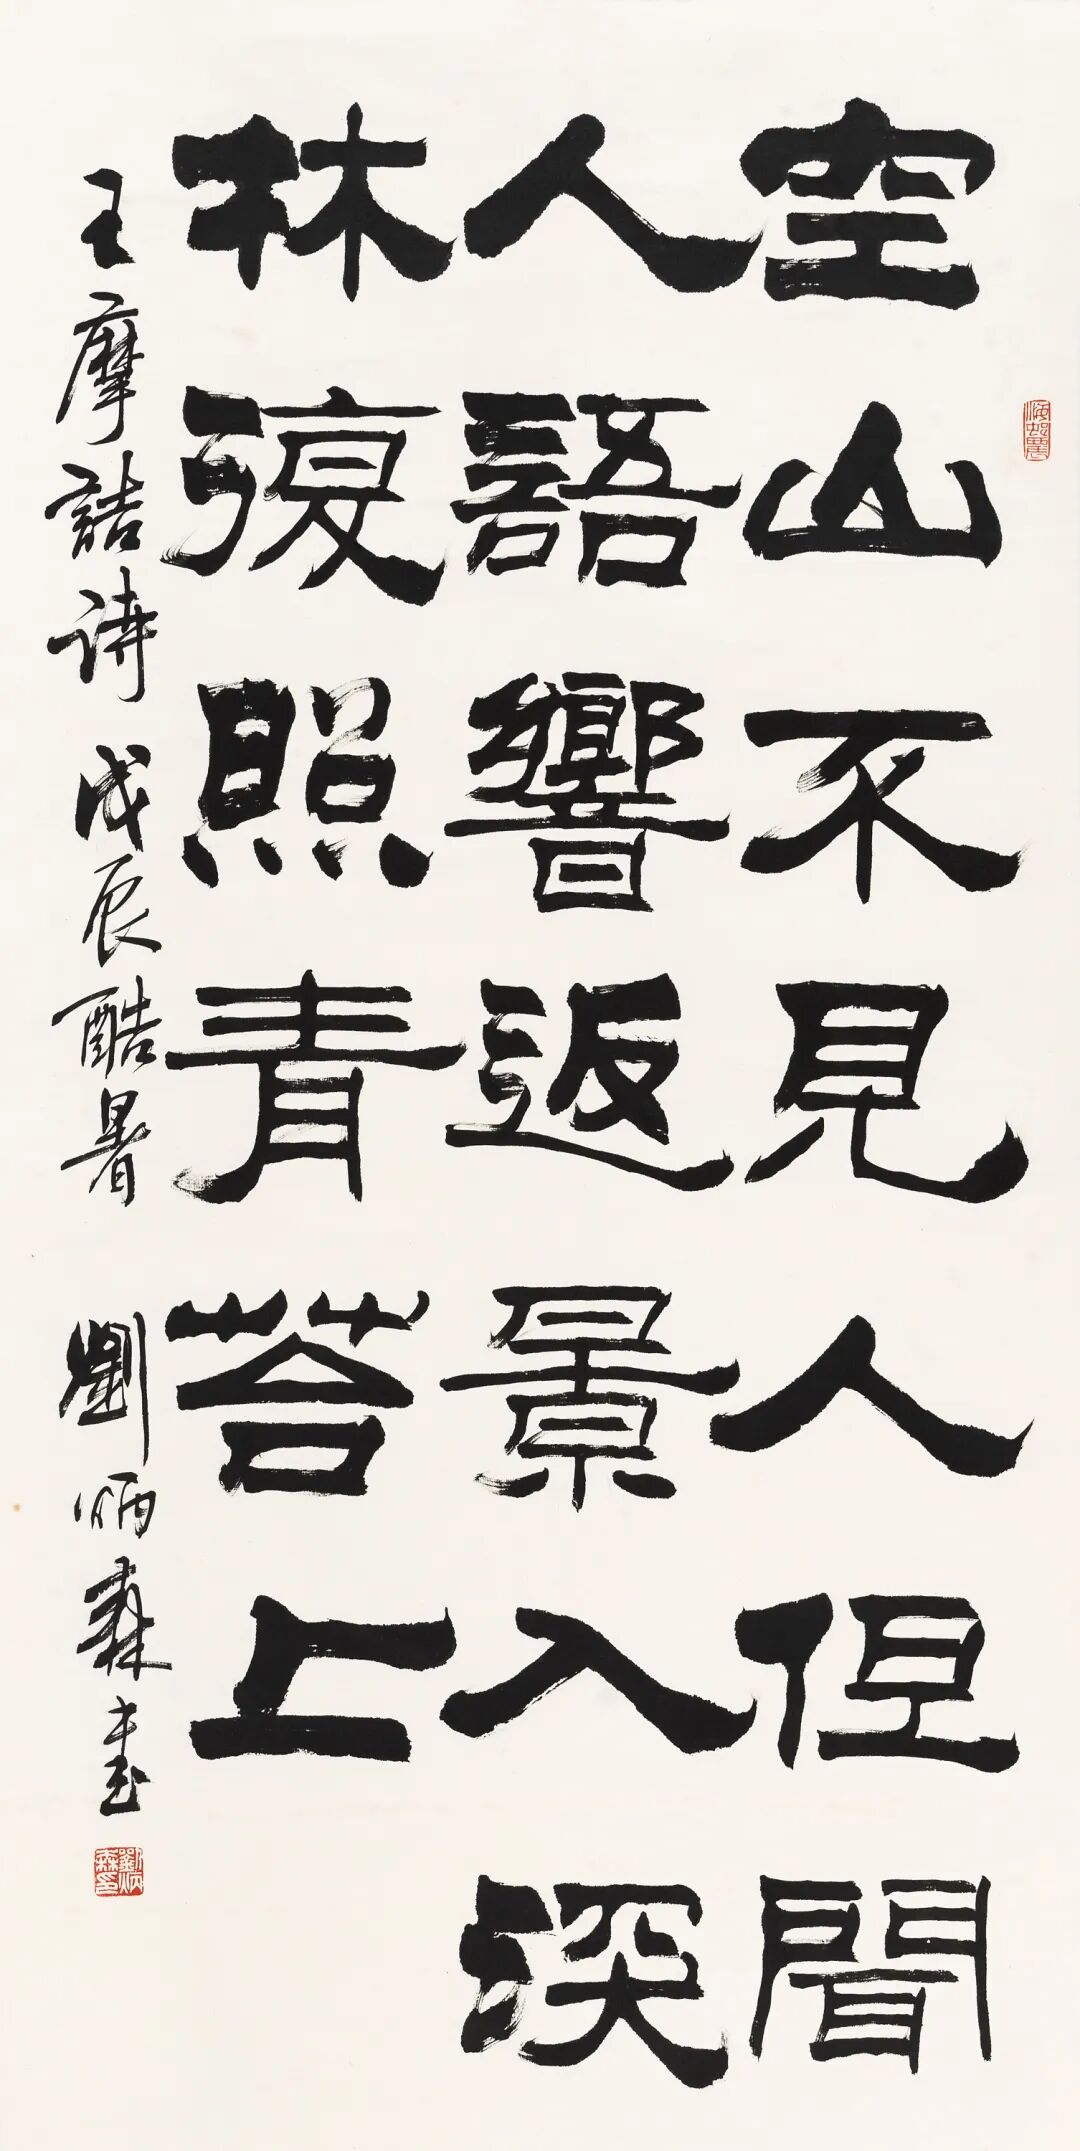 空山不見人但聞
人語響返景入深
林復照青苔上
王摩詰詩 戊辰酷暑 劉炳森書
劉炳森印